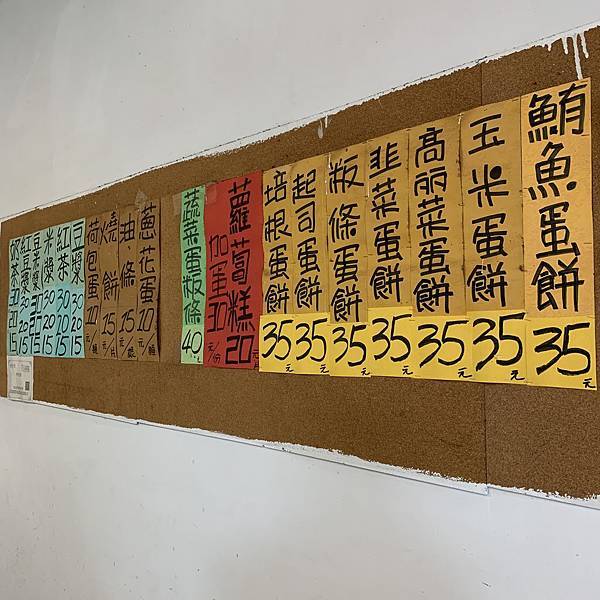 鮪魚蛋餅 35元
玉米蛋餅 35元
高麗菜蛋餅 35元
韭菜蛋餅 35元
粄條蛋餅 35元
起司蛋餅 35元
培根蛋餅 35元
蘿蔔糕 20元
加蛋 30元/份
蔬菜蛋粄條 40元
蔥花蛋 10元/
油條 15元/
燒餅 15元/
荷包蛋 10元/
豆漿 30 20 15
紅茶 30 20 15
米漿 30 20 15
豆米漿 30 20 15
紅豆漿 30 20 15
奶茶 30 20 15